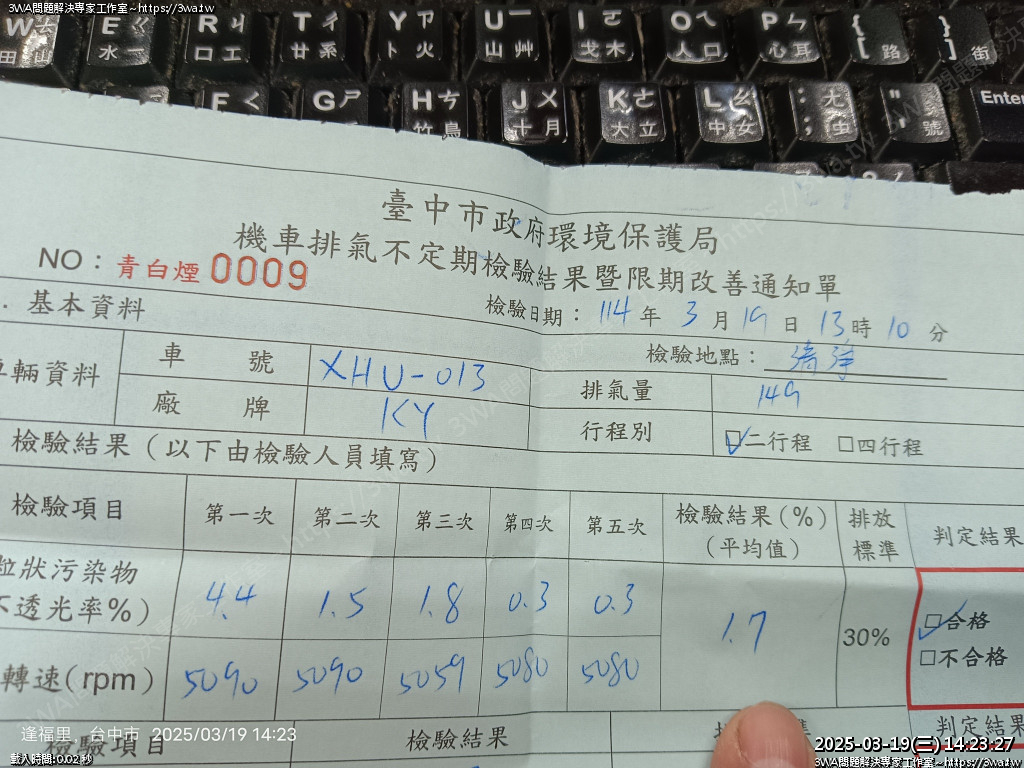 3WA問題解決專家工作室~https://3wa.tw
W ㄊ 田 E ㄍ 水 一 R ㄐ 口 工 T ㄔ 甘 系 Y ㄗ 卜 火 U ㄧ 山 艸 I ㄛ 戈 木 O ㄟ 人 口 P ㄣ 心 耳 { [ 路 } ] 街
F ㄑ G ㄕ H ㄘ 竹 鳥 J ㄨ 十 月 K ㄜ 大 立 L ㄠ 中 女 : ; ㄤ 虫 " ' 號 Enter
臺中市政府環境保護局
機車排氣不定期檢驗結果暨限期改善通知單
NO:青白煙 0009
. 基本資料
檢驗日期: 114 年 3 月 19 日 13 時 10 分
檢驗地點:
車輛資料 車 號 XHU-013 排氣量 149
廠 牌 KY 行程別 ☑二行程 □四行程
檢驗結果(以下由檢驗人員填寫)
檢驗項目 第一次 第二次 第三次 第四次 第五次 檢驗結果(%)(平均值) 排放標準 判定結果
粒狀污染物
不透光率%) 4.4 1.5 1.8 0.3 0.3 1.7 30% ☑合格
□不合格
轉速(rpm) 5090 5090 5059 5080 5080
檢驗項目 檢驗結果 準 判定結果
逢福里 台中市 2025/03/19 14:23
2025-03-19(三) 14:23:27
載入時間:0.02 秒
3WA問題解決專家工作室~https://3wa.tw